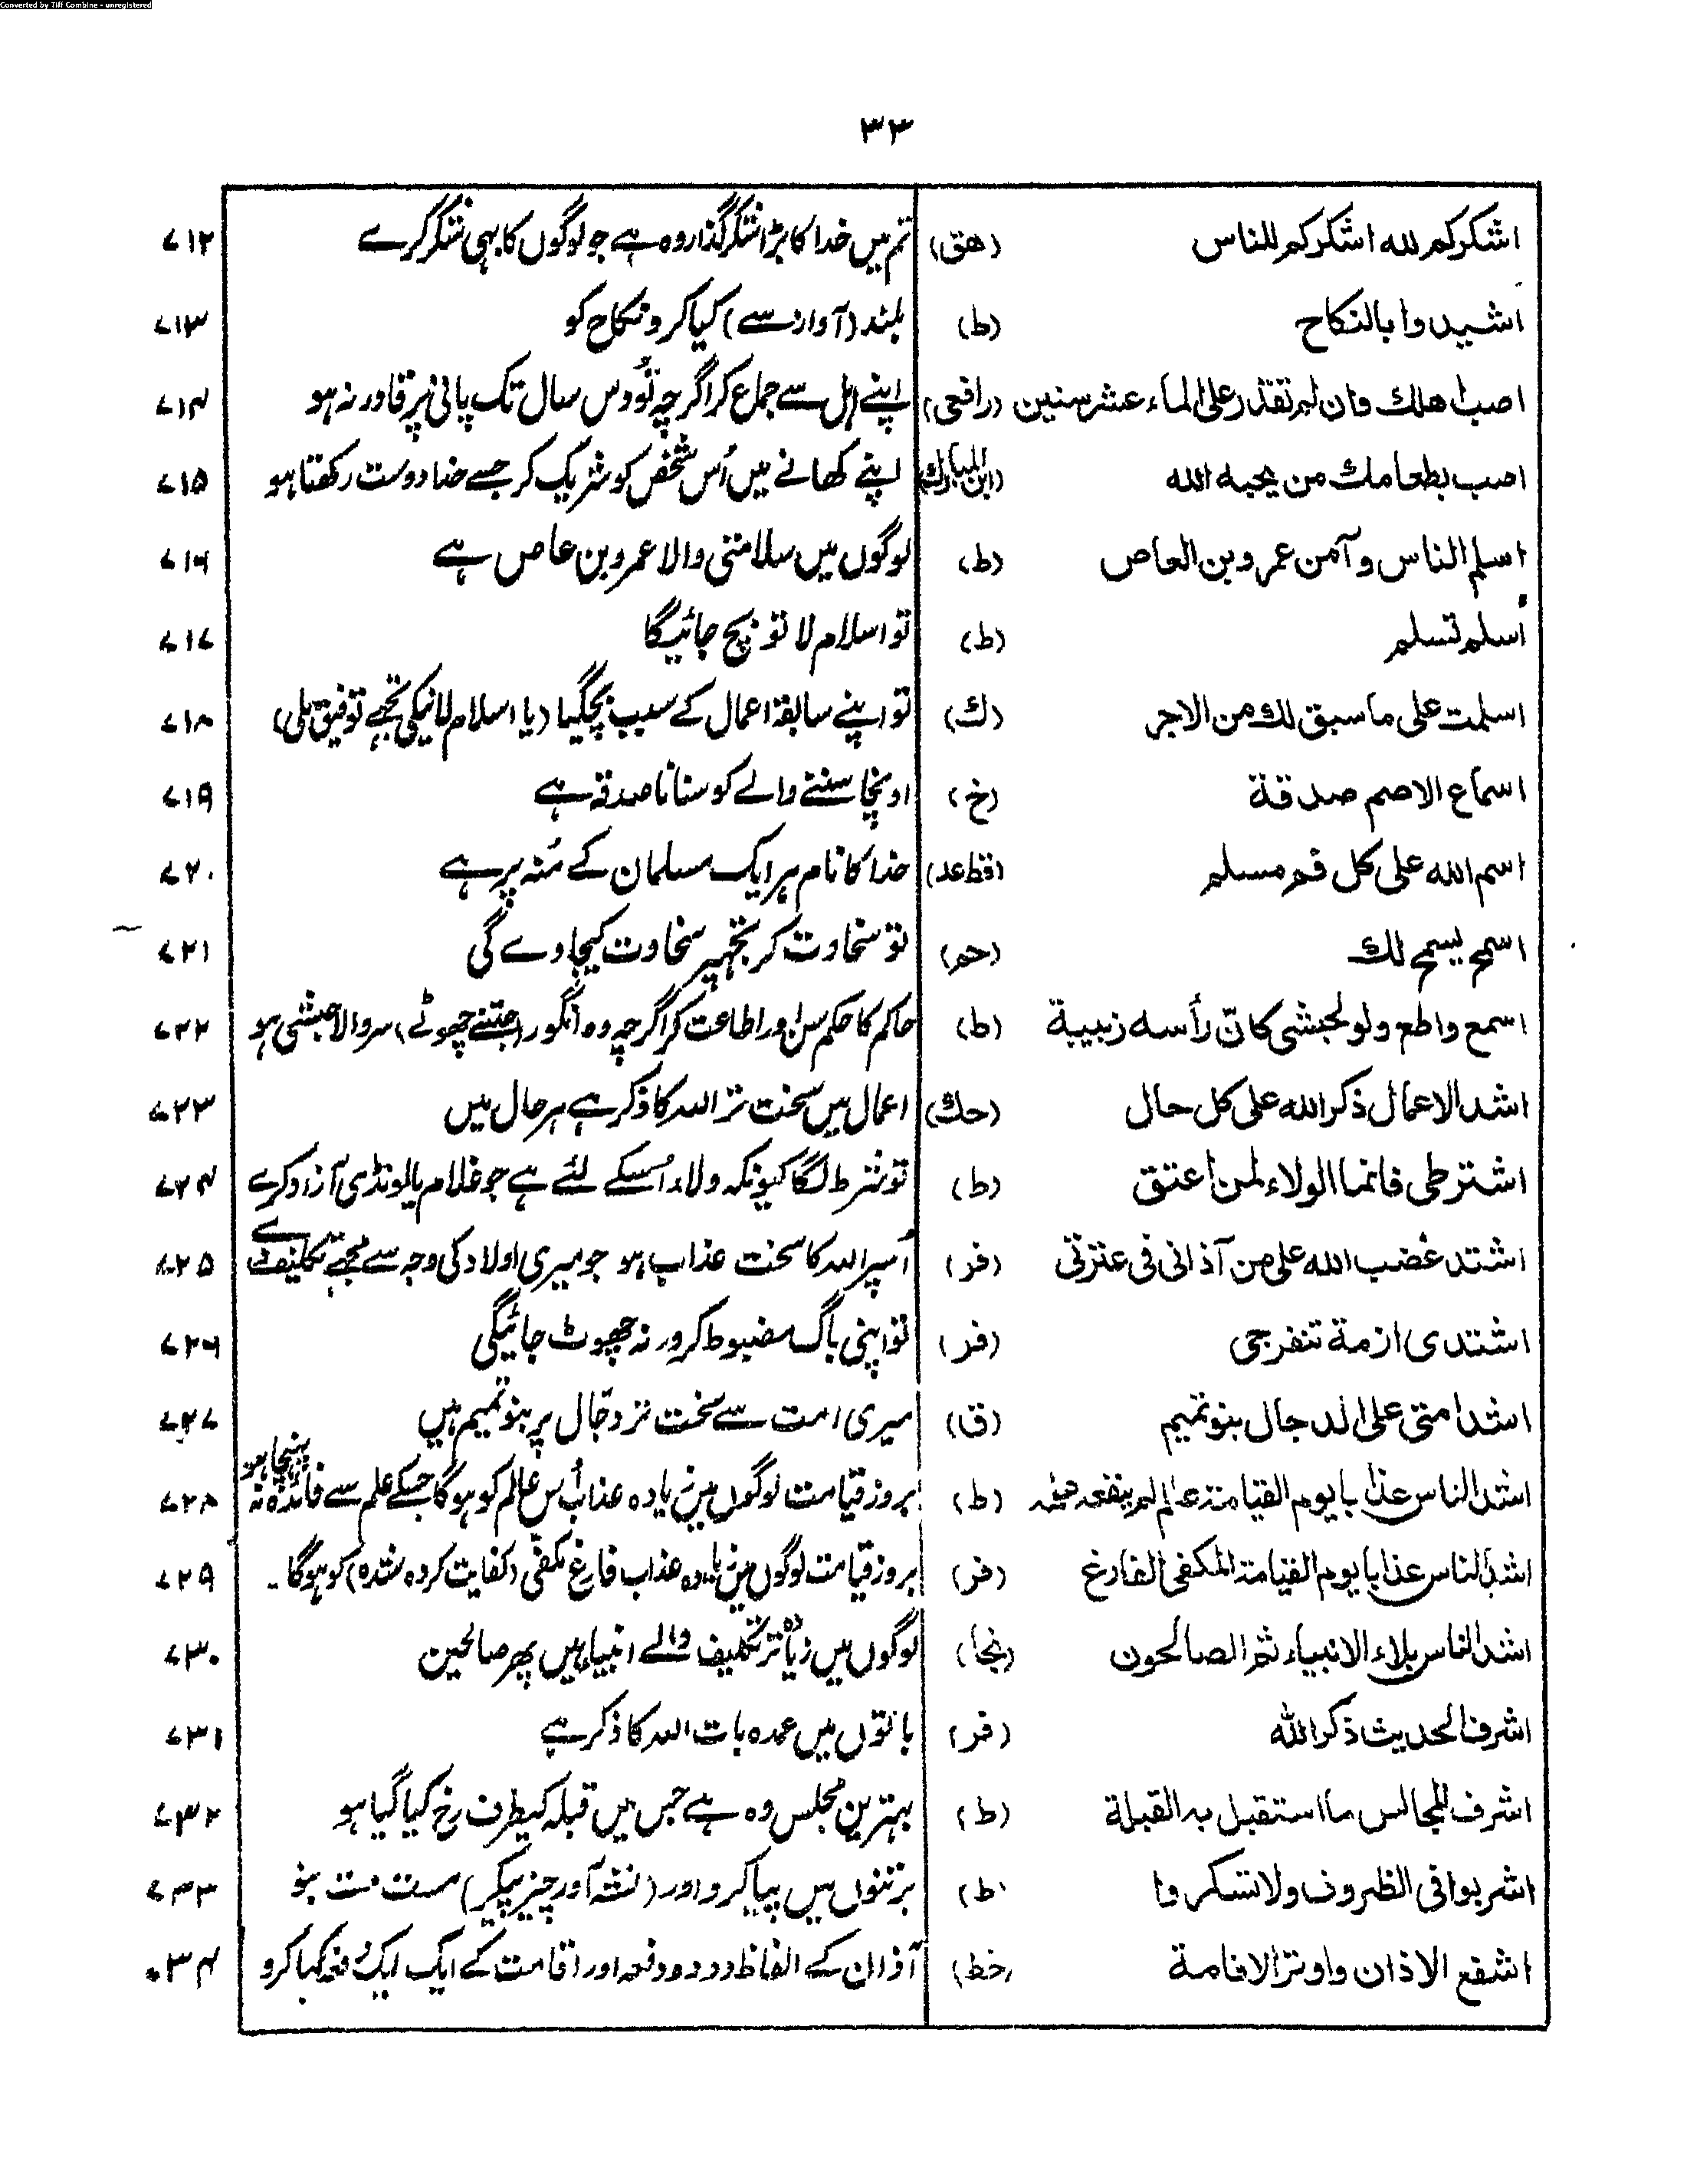 Converted by Tiff Combine - unregistered
٣٣
اشكركم لله اشكركم للناس (هق) تم میں خدا کا بڑا شکر گذار وہ ہے جو لوگوں کا بہی شکر کرے ٧١٢
اشيدوا بالنكاح (ط) بلند (آواز سے) کیا کرو نکاح کو ٧١٣
اصب اهلك وان لم تقدر على الماء عشر سنين (رافعی) اپنے اہل سے جماع کر اگرچہ تو دس سال تک پانی پر قادر نہ ہو ٧١۴
اصب بطعامك من يحبه الله (ابن المبارك) اپنے کھانے میں اُس شخص کو شریک کر جسے خدا دوست رکھتا ہو ٧١۵
اسلم الناس وآمن عمرو بن العاص (ط) لوگوں میں سلامتی والا عمرو بن عاص ہے ٧١۶
أسلم تسلم (ط) تو اسلام لا تو بچ جائیگا ٧١٧
اسلمت على ما سبق لك من الاجر (ك) تو اپنے سابقہ اعمال کے سبب بچگیا (یا اسلام لانیکی تجھے توفیق ملی) ٧١٨
اسماع الاصم صدقة (خ) اونچا سننے والے کو سنانا صدقہ ہے ٧١٩
اسم الله على كل فم مسلم (قط عد) خدا کا نام ہر ایک مسلمان کے مُنہ پر ہے ٧٢٠
اسمح يسمح لك (حم) تو سخاوت کر تجھپر سخاوت کیجاوے گی ٧٢١
اسمع واطع ولو لحبشى كانّ رأسه زبيبة (ط) حاکم کا حکم سن اور اطاعت کر اگرچہ وہ انگور (جتنے چھوٹے) سر والا حبشی ہو ٧٢٢
اشد الاعمال ذكر الله على كل حال (حك) اعمال میں سخت تر اللہ کا ذکر ہے ہر حال میں ٧٢٣
اشترطى فانما الولاء لمن اعتق (ط) تو شرط لگا کیونکہ ولاء اُسکے لئے ہے جو غلام یا لونڈی آزاد کرے ٧٢۴
اشتد غضب الله على من آذانى فى عترتى (فر) اُسپر اللہ کا سخت عذاب ہو جو میری اولاد کی وجہ سے مجھے تکلیف دے ٧٢۵
اشتدى ازمة تنفرجى (فر) تو اپنی باگ مضبوط کر ورنہ چھوٹ جائیگی ٧٢۶
اشد امتى على الدجال بنو تميم (ق) میری امت سے سخت تر دجّال پر بنو تمیم ہیں ٧٢٧
اشد الناس عذابا يوم القيامة عالم لم ينفعه علمه (ط) بروز قیامت لوگوں میں زیادہ عذاب اُس عالم کو ہوگا جسکے علم سے فائدہ نہ پہنچا ہو ٧٢٨
اشد الناس عذابا يوم القيامة المكفى الفارغ (فر) بروز قیامت لوگوں میں زیادہ عذاب فارغ مکفی (کفایت کردہ شدہ) کو ہوگا۔ ٧٢٩
اشد الناس بلاء الانبياء ثم الصالحون (نجا) لوگوں میں زیادہ تر تکلیف والے انبیاء ہیں پھر صالحین ٧٣٠
اشرف الحديث ذكر الله (فر) باتوں میں عمدہ بات اللہ کا ذکر ہے ٧٣١
اشرف المجالس ما استقبل به القبلة (ط) بہترین مجلس وہ ہے جس میں قبلہ کیطرف رخ کیا گیا ہو ٧٣٢
اشربوا فى الظروف ولا تسكروا (ط) برتنوں میں پیا کرو اور (نشہ آور چیز پیکر) مست مت بنو ٧٣٣
اشفع الاذان واوتر الاقامة (خط) آذان کے الفاظ دو دو دفعہ اور اقامت کے ایک ایک دفعہ کہا کرو ٧٣۴